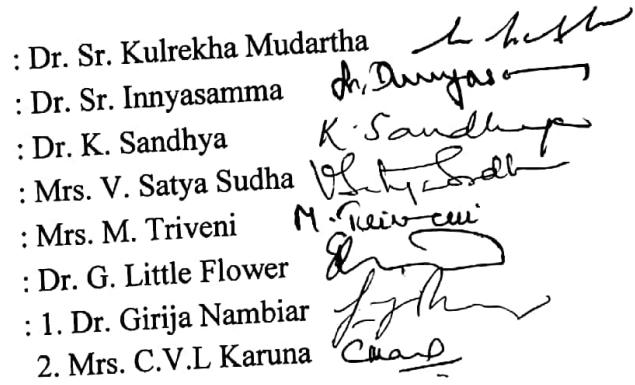 : Dr. Sr. Kulrekha Mudartha
: Dr. Sr. Innyasamma
: Dr. K. Sandhya K. Sandhya
: Mrs. V. Satya Sudha VSatya Sudha
: Mrs. M. Triveni M. Triveni
: Dr. G. Little Flower
: 1. Dr. Girija Nambiar
2. Mrs. C.V.L Karuna